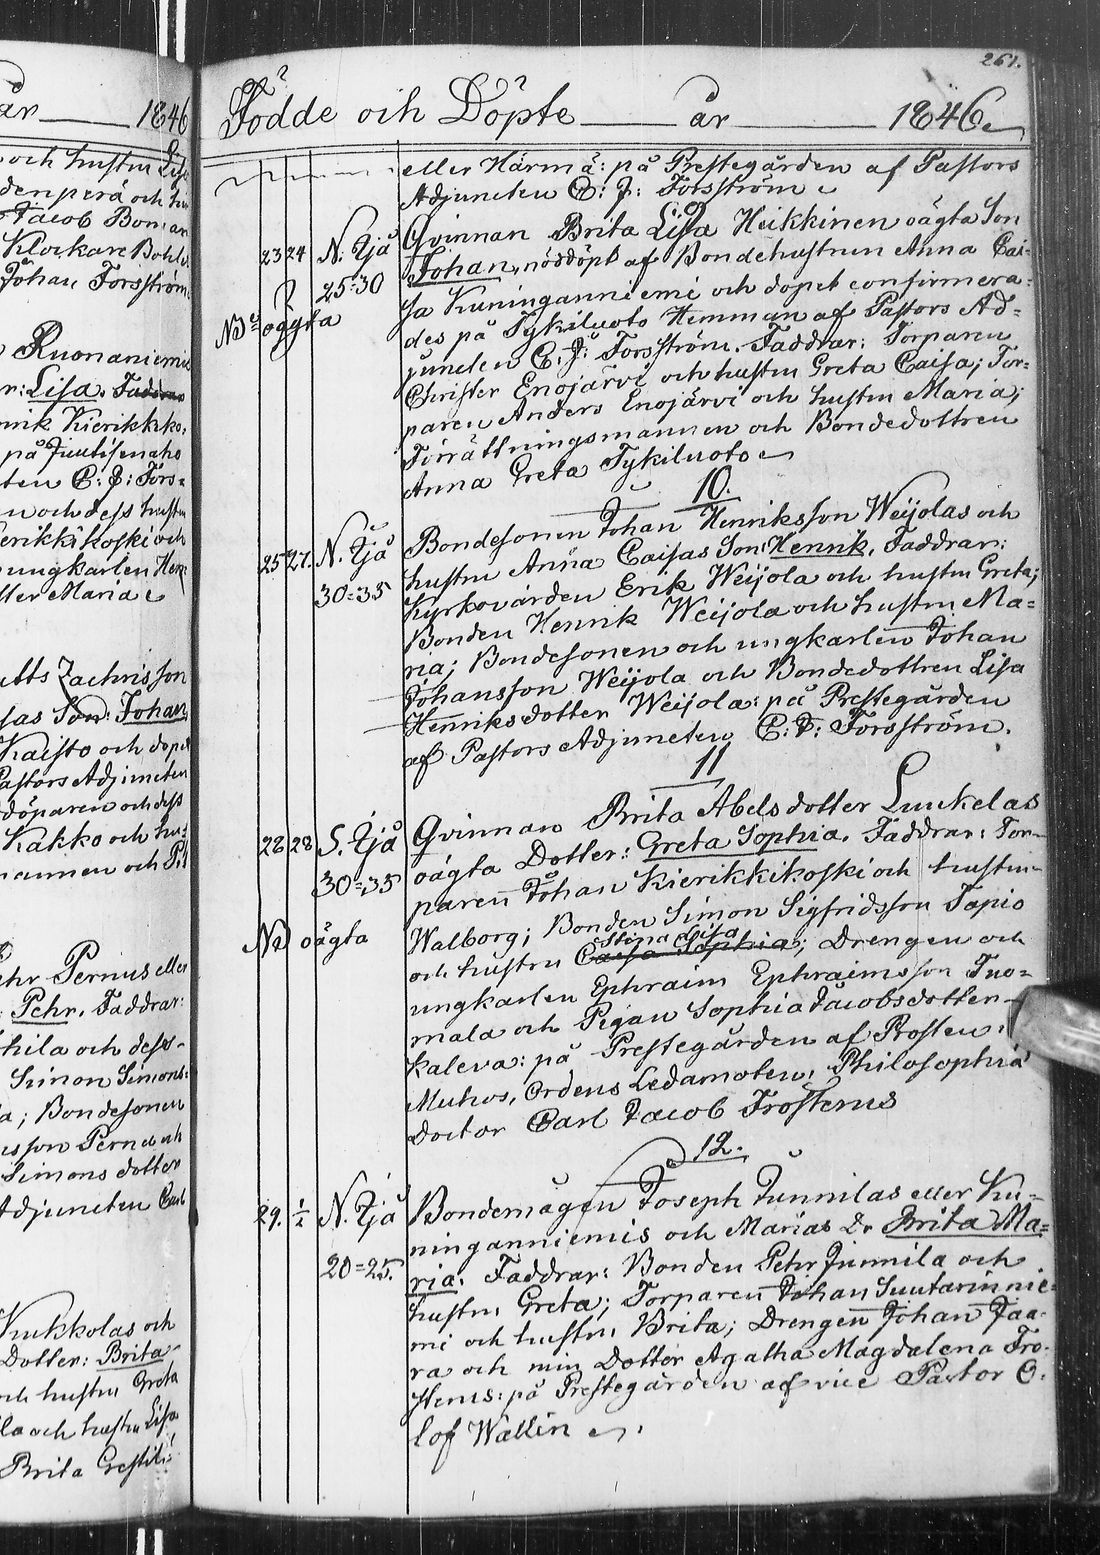 år 1846
och hustru Lisa
Jacob Bonar
Klockare Bohl
Johan Forsström
Ruonaniemis
Lisa. Faddrar
Kierikkiko
på
ten C: J: Fors=
och dess hustru
ierikkikoski och
ungkarlen Hen
eller Maria
Zachrisson
sas Son: Johan,
Kaisto och döpt
Pastors Adjuncten
döparen och dess
Kakko och hu=
Pehr Pernus eller
Pehr. Faddrar:
hila och dess
Simon Simons=
a; Bondesonen
sson Pernu och
Simons dotter
Adjuncten Carl
Kukkolas och
Dotter: Brita
och hustru Greta
la och hustru Lisa
Brita
261.
Födde och Döpte år 1846
eller Härmä: på Prestegården af Pastors
Adjuncten C: J: Forsström
23 24 N. Ijå Qvinnan Brita Lisa Heikkinen oägta Son
25=30 Johan, nöddöpt af Bondehustrun Anna Cai=
sa Kuninganniemi och dopet confirmera=
NB oägta des på Tykiluoto Hemman af Pastors Ad=
juncten C. J: Forsström. Faddrar: Torparen
Christer Enojärvi och hustru Greta Caisa; Tor=
paren Anders Enojärvi och hustru Maria;
Förrättningsmannen och Bondedottren
Anna Greta Tykiluoto
10.
25 27. N. Ijå Bondesonen Johan Henriksson Weijolas och
30=35 hustru Anna Caisas Son: Henrik. Faddrar:
Kyrkovärden Erik Weijola och hustru Greta;
Bonden Henrik Weijola och hustru Ma=
ria; Bondesonen och ungkarlen Johan
Johansson Weijola och Bondedottren Lisa
Henriksdotter Weijola: på Prestegården
af Pastors Adjuncten C: J: Forsström.
11
28 28 S. Ijå Qvinnan Brita Abelsdotter Luukelas
30=35 oägta Dotter: Greta Sophia. Faddrar: Tor=
paren Johan Kierikkikoski och hustru
Walborg; Bonden Simon Sigfridsson Tapio
NB oägta Stina Lisa
och hustru Caisa Sophia; Drengen och
ungkarlen Ephraim Ephraimsson Tuo=
mala och Pigan Sophia Jacobsdotter
Kaleva: på Prestegården af Prosten i
Muhos, Ordens Ledamoten, Philosophiä
Doctor Carl Jacob Frosterus
12.
29. 1/2 N. Ijå Bondemågen Joseph Junnilas eller Ku=
ninganniemis och Marias Dr Brita Ma=
20=25. ria: Faddrar: Bonden Pehr Junnila och
hustru Greta; Torparen Johan Suutarinnie=
mi och hustru Brita; Drengen Johan Jaa=
ra och min Dotter Agatha Magdalena Fro=
sterus: på Prestegården af vice Pastor O=
lof Wallin